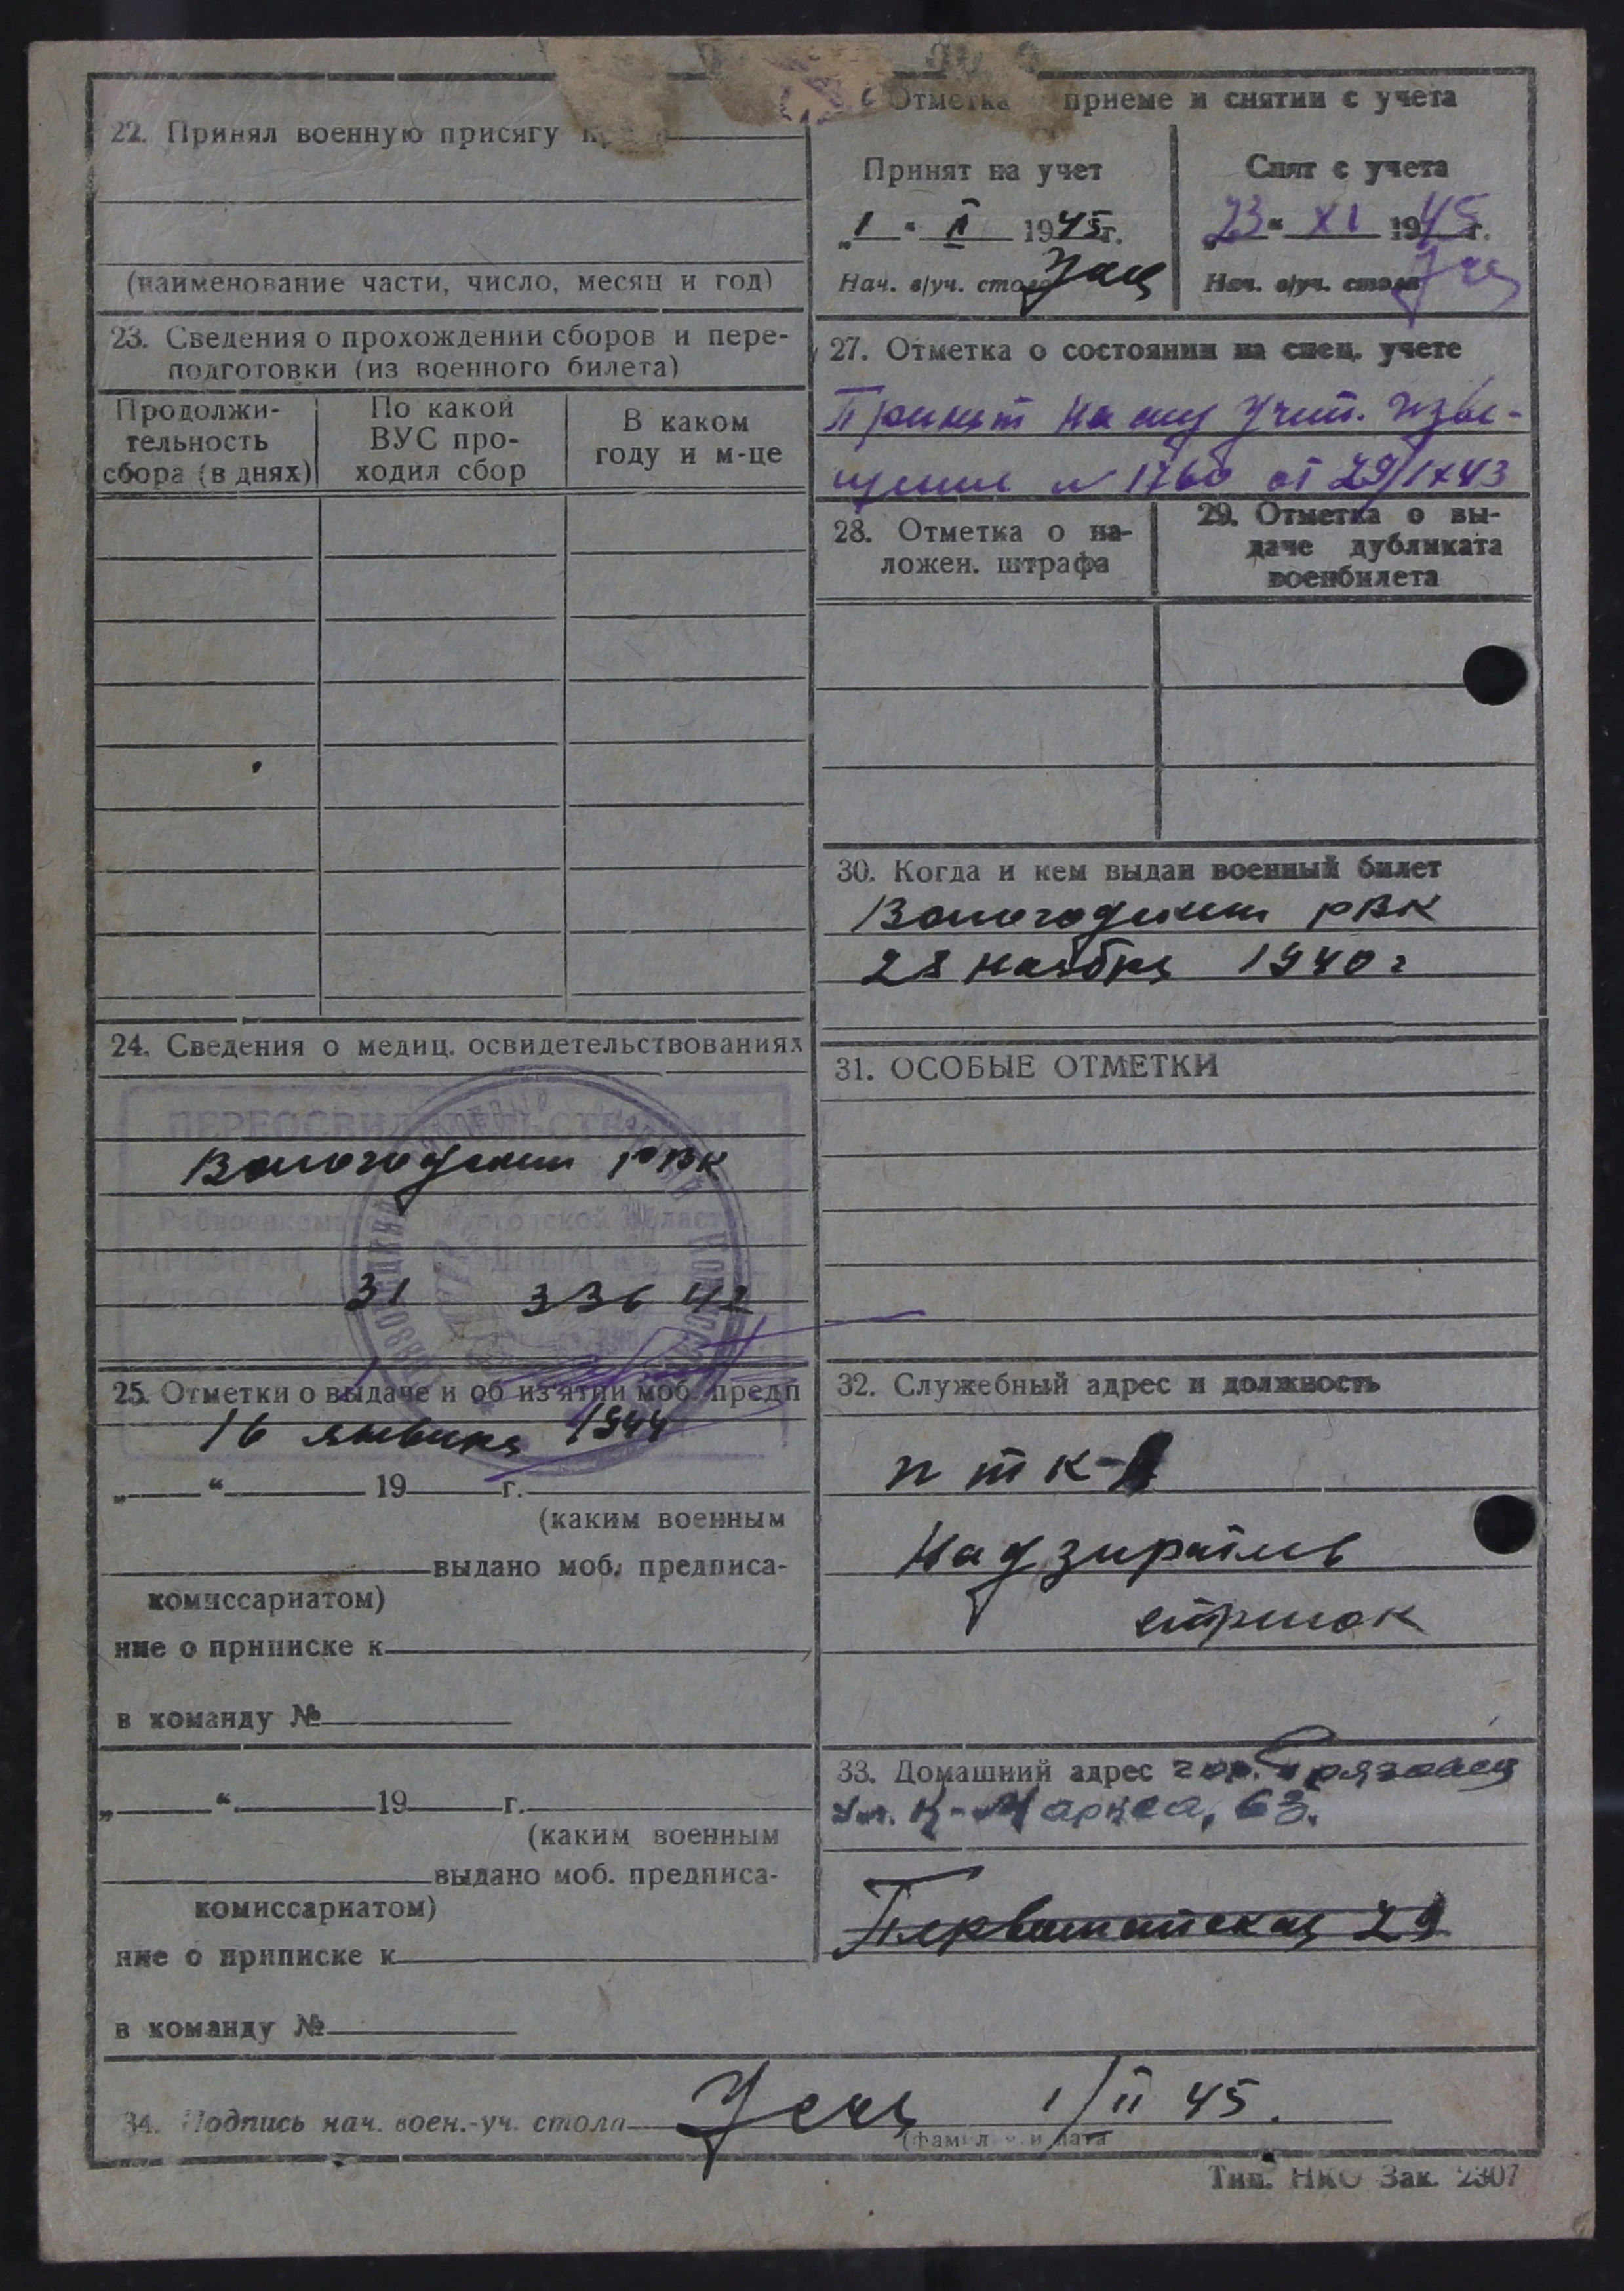 22. Принял военную присягу
(наименование части, число, месяц и год)
23. Сведения о прохождении сборов и пере-
подготовки (из военного билета)
Продолжи-
тельность
сбора (в днях)
По какой
ВУС про-
ходил сбор
В каком
году и м-це
24. Сведения о медиц. освидетельствованиях
ПЕРЕОСВИДЕТЕЛЬСТВОВАН
Вологодским РВК
Райвоенкомат Вологодской области
31 336 42
25. Отметки о выдаче и об изъятии моб. предп
16 января 1944
„ “ 19 г.
(каким военным
выдано моб. предписа-
комиссариатом)
ние о приписке к
в команду №
„ “ 19 г.
(каким военным
выдано моб. предписа-
комиссариатом)
ние о приписке к
в команду №
Отметка приеме и снятии с учета
Принят на учет
„1“ II 1945г.
Нач. в/уч. стола
Снят с учета
„23“ XI 1945г.
Нач. в/уч. стола
27. Отметка о состоянии на спец. учете
Принят на спец учет. Изве-
щение N 1760 от 29/IX 43
28. Отметка о на-
ложен. штрафа
29. Отметка о вы-
даче дубликата
военбилета
30. Когда и кем выдан военный билет
Вологодским РВК
28 ноября 1940 г
31. ОСОБЫЕ ОТМЕТКИ
32. Служебный адрес и должность
Надзиратель
стрелок
33. Домашний адрес гор. Грязовец
ул. К-Маркса, 63.
Первомайская 29
34. Подпись нач. воен.-уч. стола 1/II 45.
(фамил и дата
Тип. НКО Зак. 2307